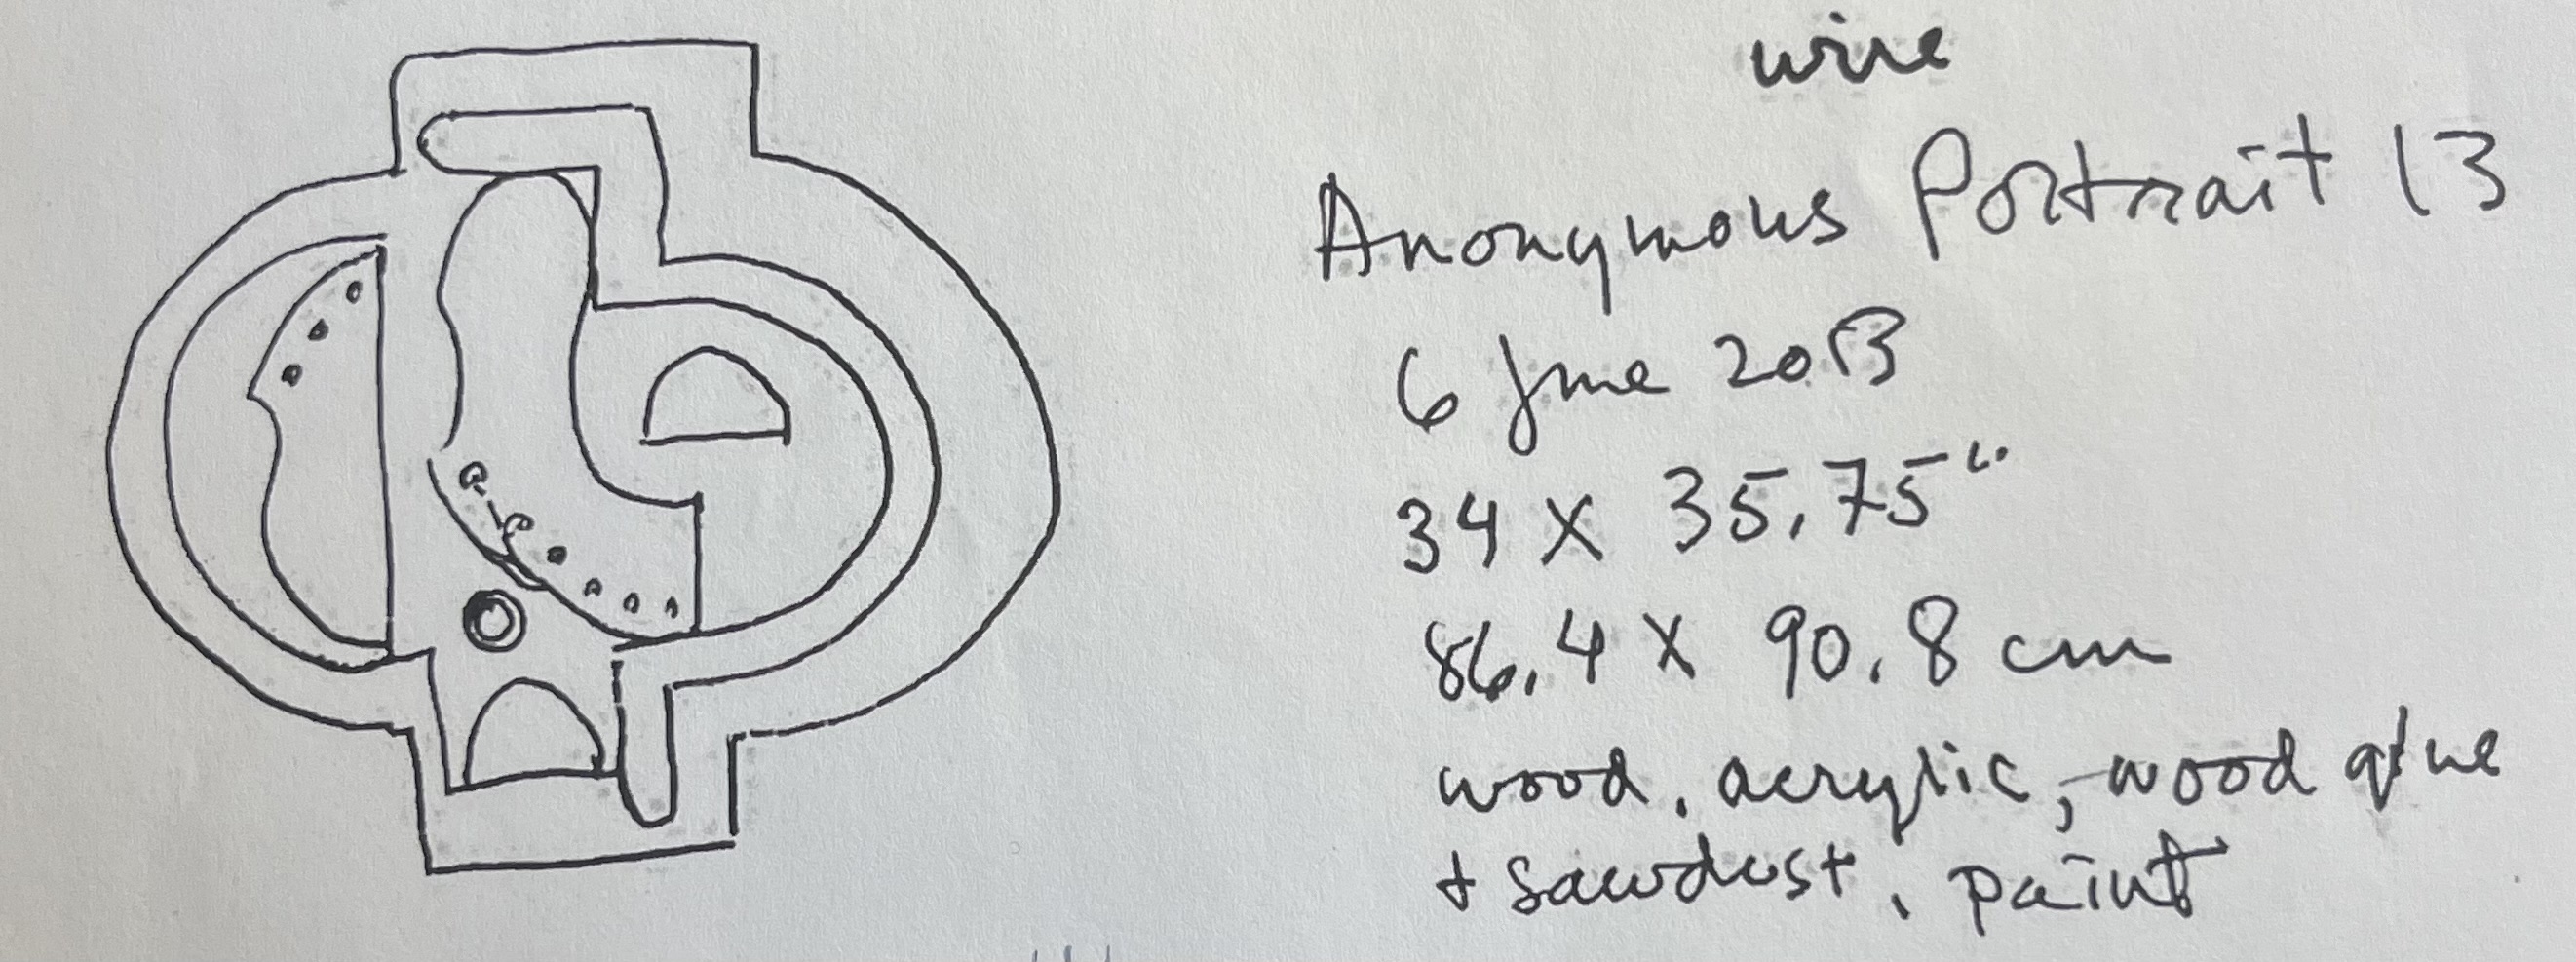 wire
Anonymous Portrait 13
6 June 2013
34 X 35.75"
86.4 X 90.8 cm
wood, acrylic, wood glue
+ sawdust, paint